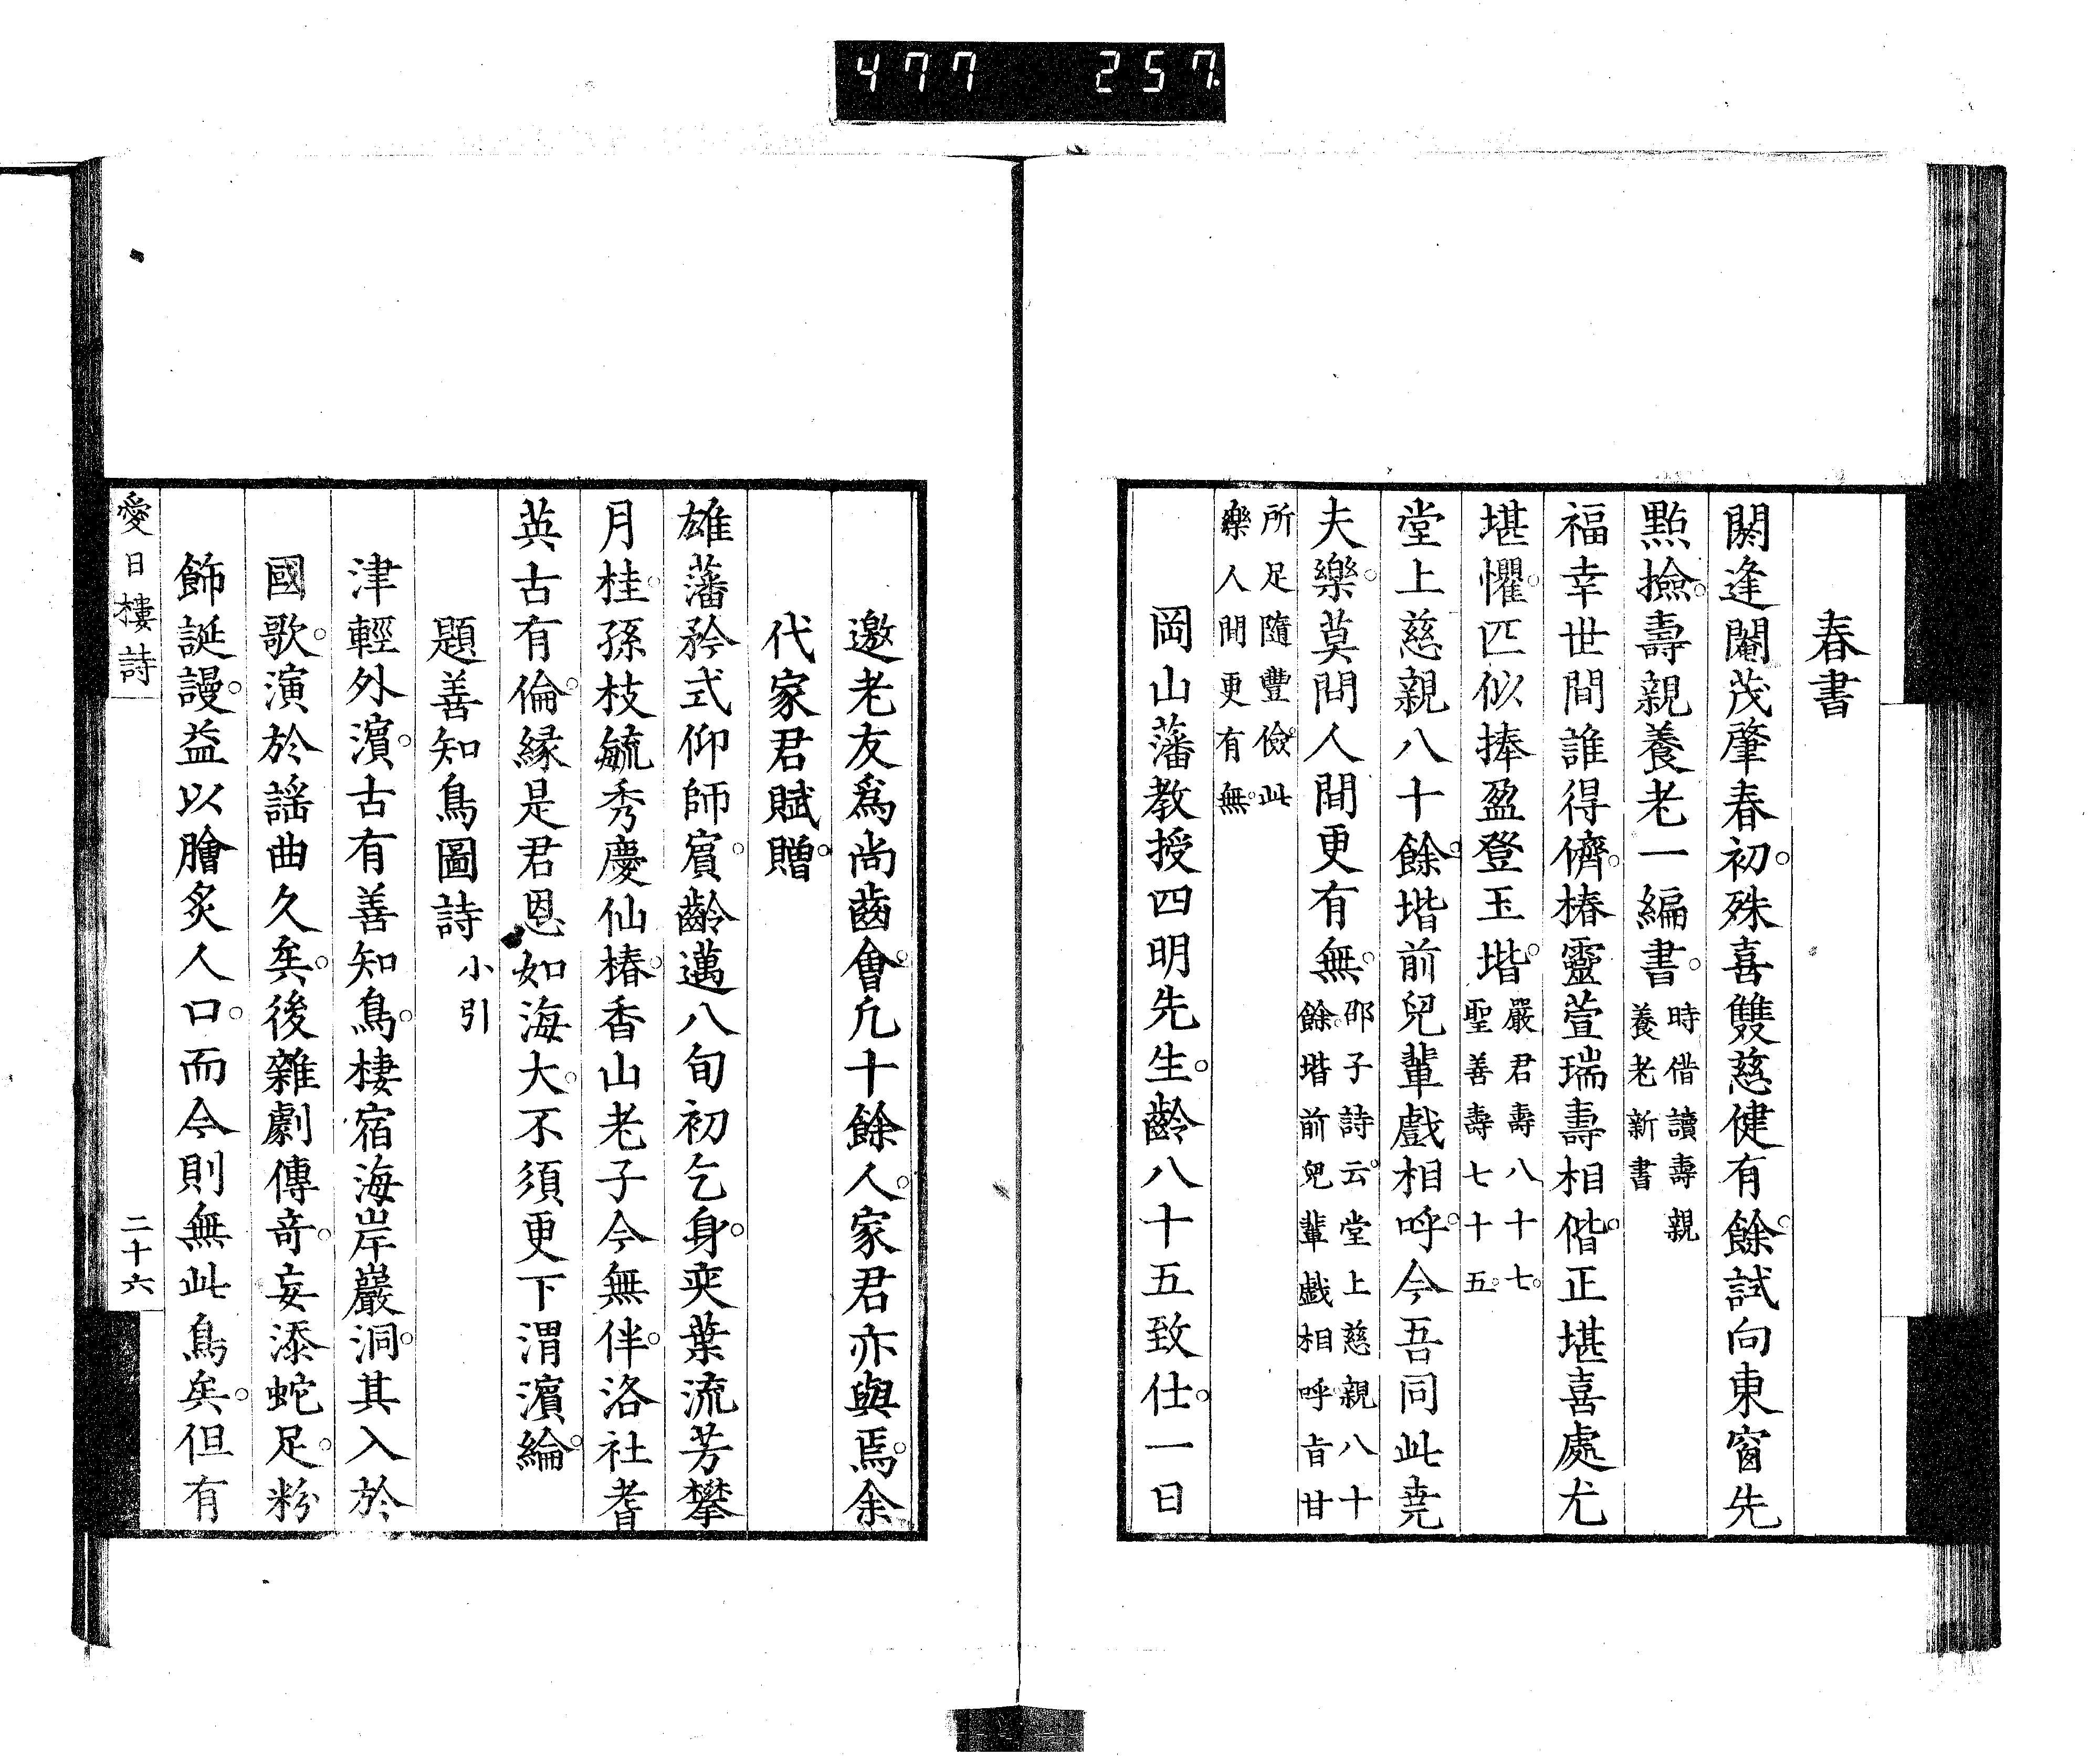 477 257
春書
閼逢閹茂肇春初。殊喜雙慈健有餘。試向東窗先
點撿。壽親養老一編書。時借讀壽親
養老新書
福幸世間誰得儕。椿靈萱瑞壽相偕。正堪喜處尤
堪懼。匹似捧盈登玉堦。嚴君壽八十七。
聖善壽七十五。
堂上慈親八十餘。堦前兒輩戲相呼。今吾同此堯
夫樂。莫問人間更有無。邵子詩云。堂上慈親八十
餘。堦前兒輩戲相呼。旨甘
所足隨豐儉。此
樂人間更有無。
岡山藩教授四明先生。齡八十五致仕。一日
邀老友爲尚齒會。凢十餘人。家君亦與焉。余
代家君賦贈。
雄藩矜式仰師賓。齡邁八旬初乞身。奕葉流芳攀
月桂。孫枝毓秀慶仙椿。香山老子今無伴。洛社耆
英古有倫。縁是君恩如海大。不須更下渭濱綸。
題善知鳥圖詩小引
津輕外濵。古有善知鳥。棲宿海岸巖洞。其入於
國歌。演於謡曲久矣。後雜劇傳竒。妄添蛇足。粉
飾誕謾。益以膾炙人口。而今則無此鳥矣。但有
愛日樓詩
二十六